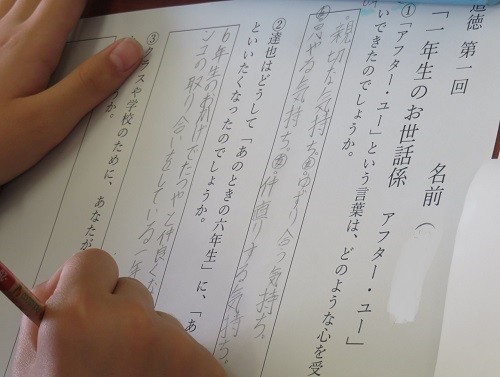 道徳 第一回
「一年生のお世話係 アフター・ユー」
名前（
①「アフター・ユー」という言葉は、どのような心を受
いできたのでしょうか。
・親切な気持ち ゆずり合う気持ち。
思いやる気持ち。 仲直りする気持ち。
②達也はどうして「あのときの六年生」に、「あ
といいたくなったのでしょうか。
6年生のおかげでたつやと仲良くな
ンコの取り合いをしている一年
③クラスや学校のために、あなたが
か。